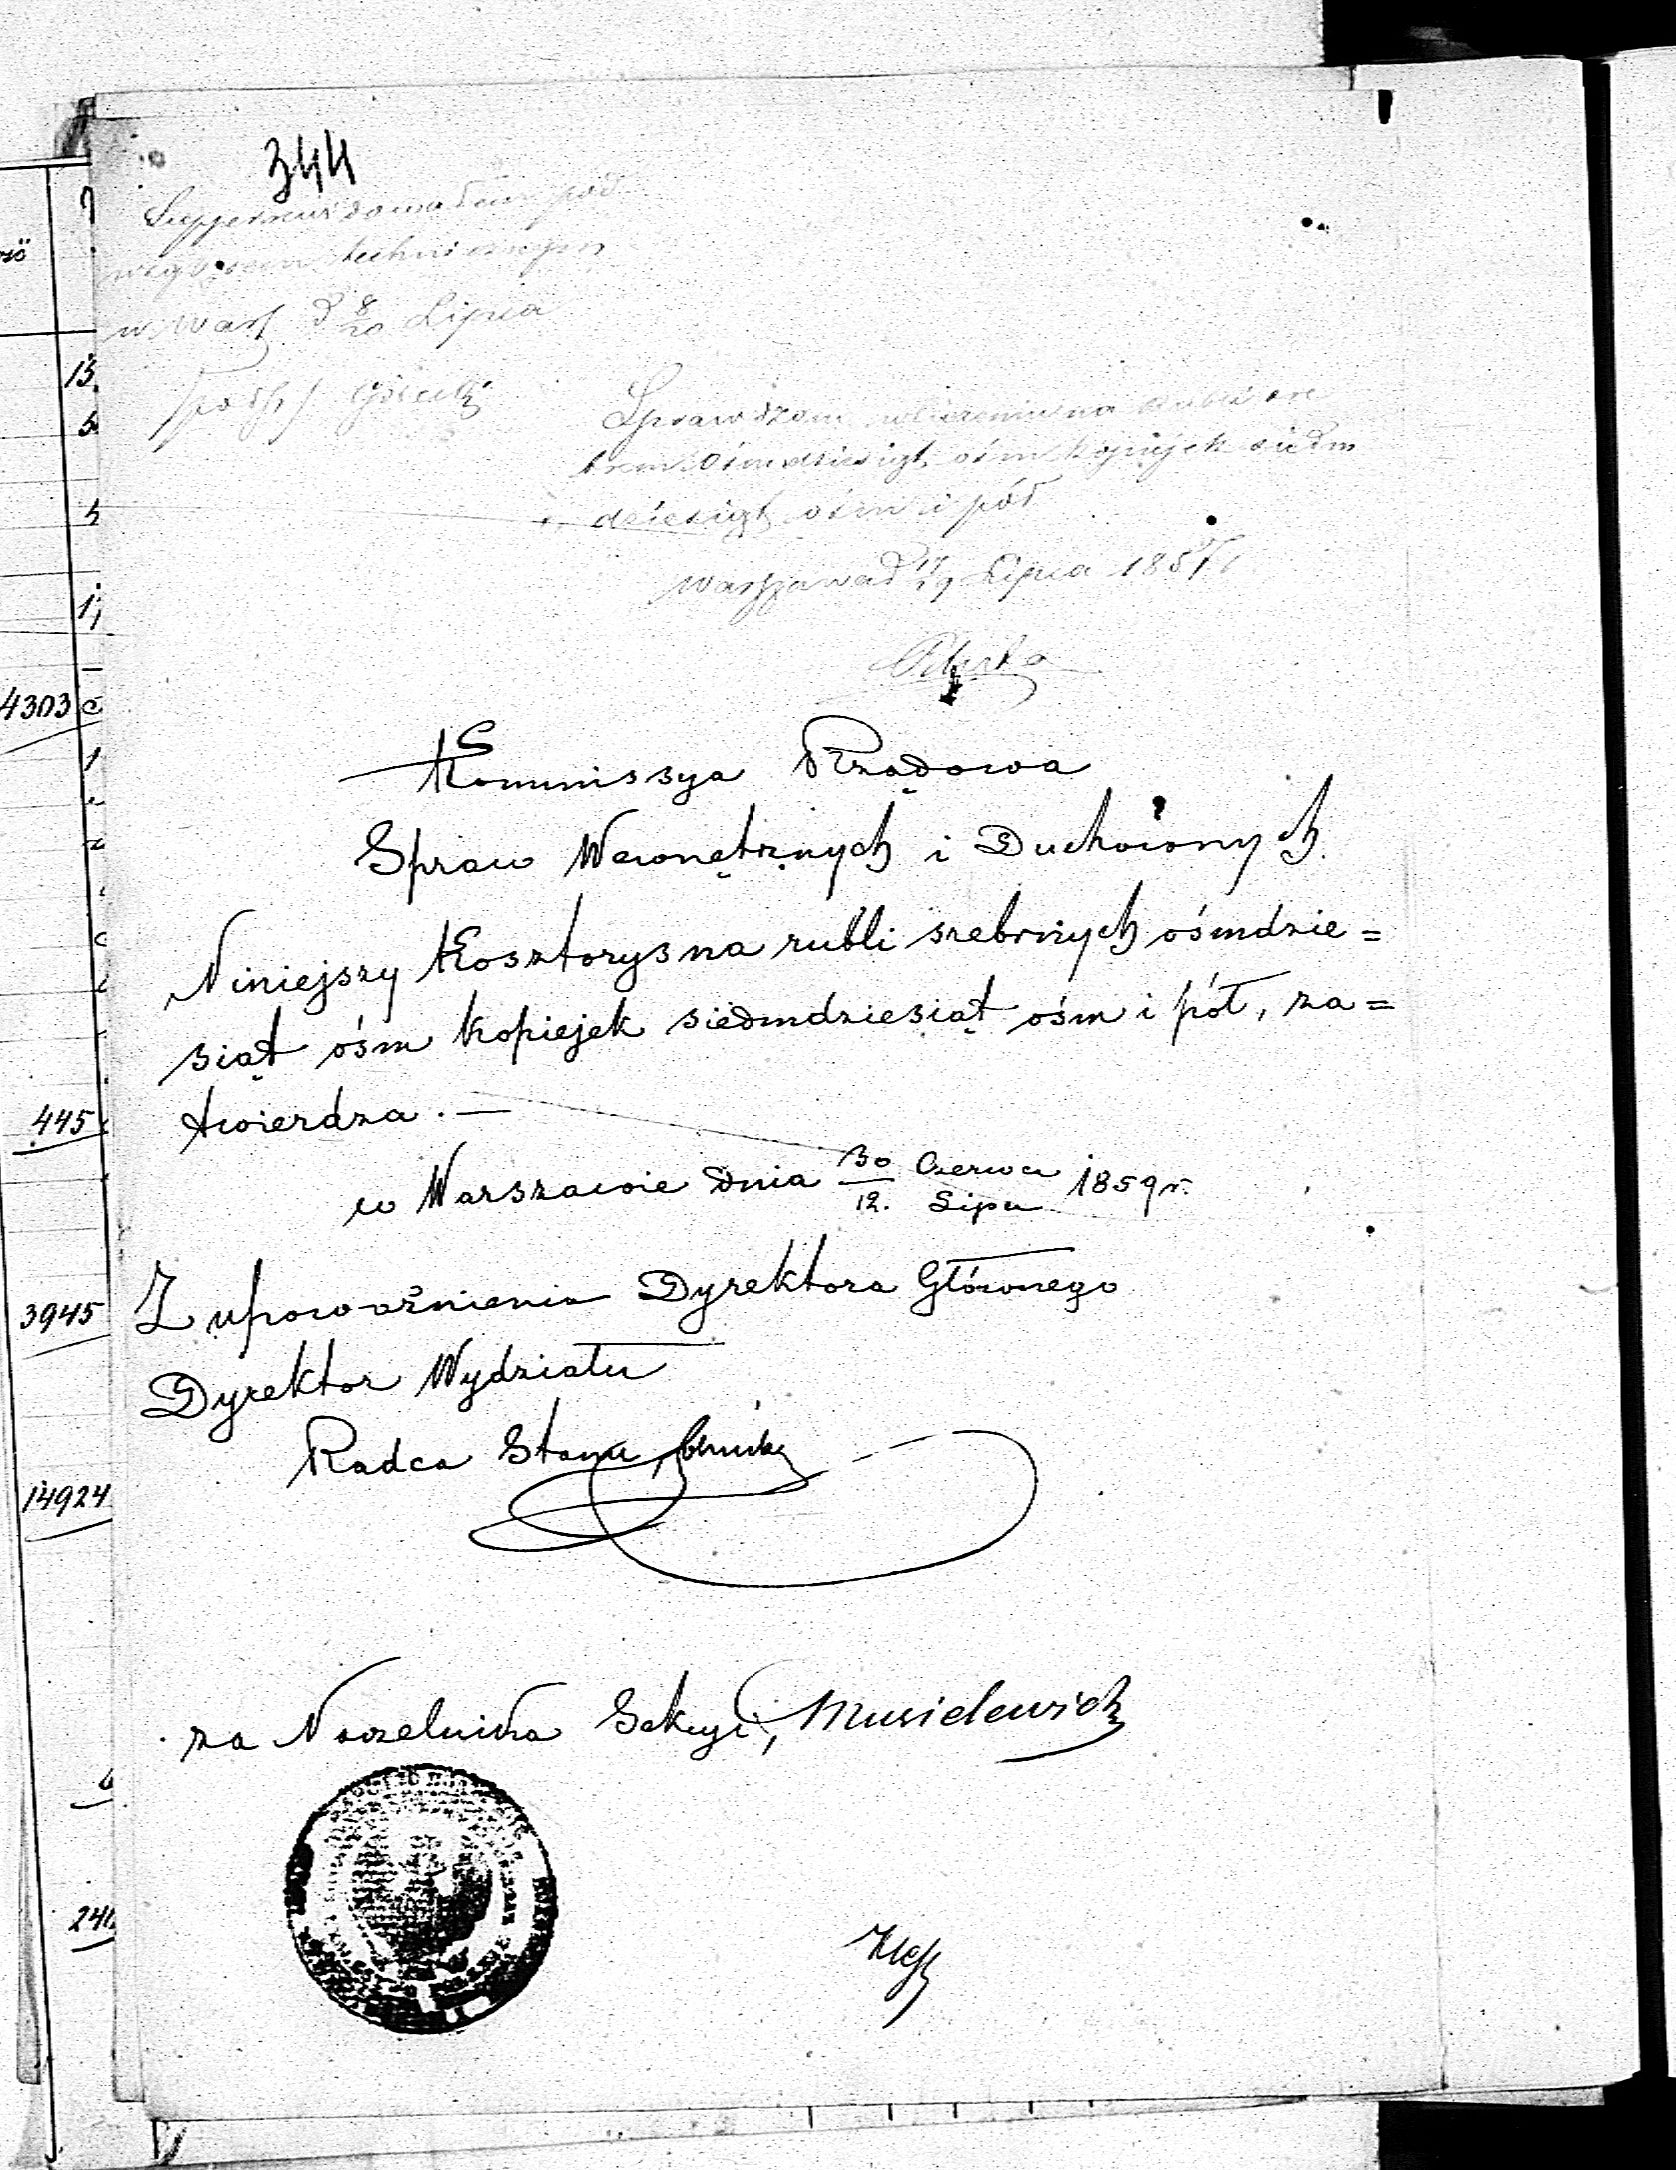 344
Supperrewidowałem pod
względem technicznym
w Warsz d 8/20 Lipca
/podp/ Górecki
Sprawdzono na Rubli sre
brem Ośmdziesiąt ośm kopiejek siedm
dziesiąt ośm i pół
Warszawa d 17/29 Lipca
Kommissya Rządowa
Spraw Wewnętrznych i Duchownych.
Niniejszy Kosztorys na rubli srebrnych ośmdzie=
siąt ośm kopiejek siedmdziesiąt ośm i pół, za=
twierdza. —
w Warszawie dnia 30 Czerwca / 12. Lipca 1859 r.
Z upoważnienia Dyrektora Głównego
Dyrektor Wydziału
Radca Stanu,
za Naczelnika Sekcyi, Musielewicz
13
4303
445
3945
14924